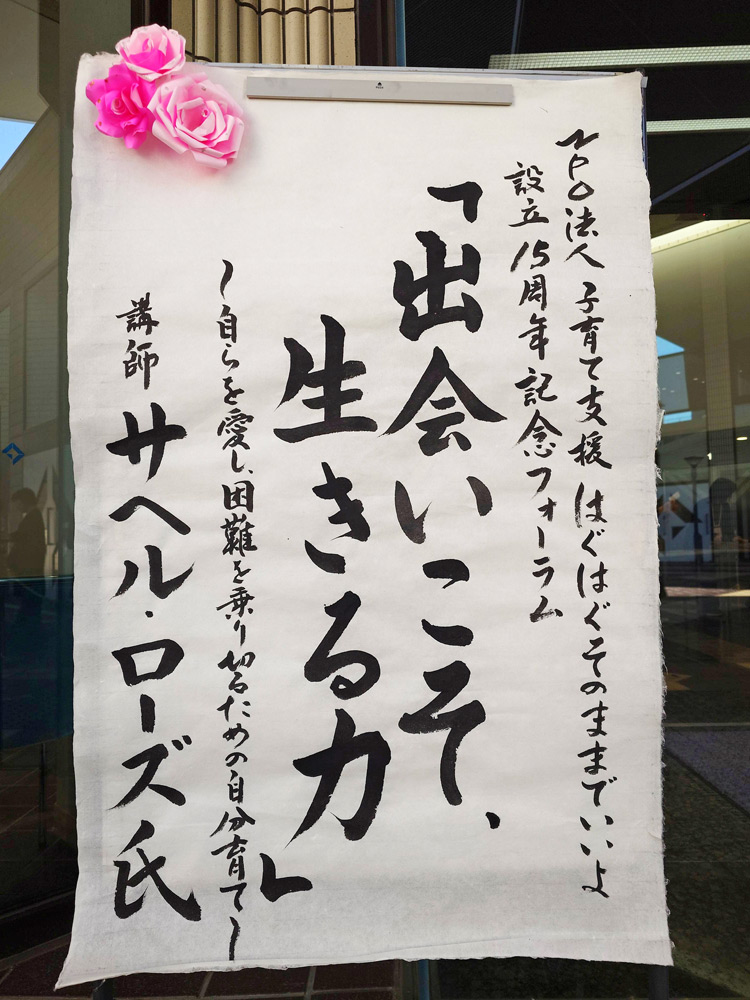 NPO法人 子育て支援 はぐはぐそのままでいいよ
設立15周年記念フォーラム
「出会いこそ、
生きる力」
~自らを愛し、困難を乗り切るための自分育て~
講師 サヘル・ローズ氏